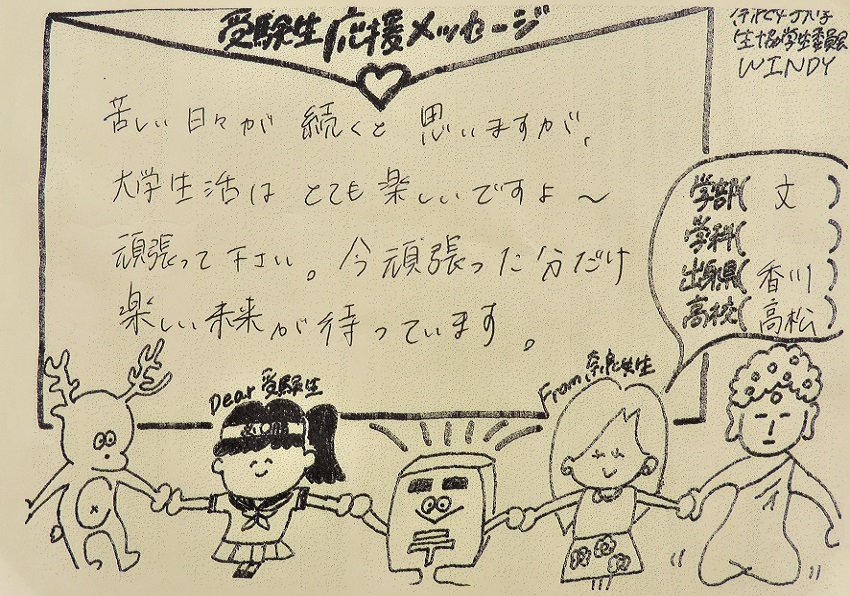 受験生応援メッセージ
生協学生委員会
WINDY
苦しい日々が 続くと 思いますが、
大学生活は とても楽しいですよ〜
頑張って下さい。今頑張った分だけ
楽しい未来が待っています。
学部( 文 )
学科( )
出身県( 香川 )
高校( 高松 )
Dear 受験生
From 奈良女生
〒